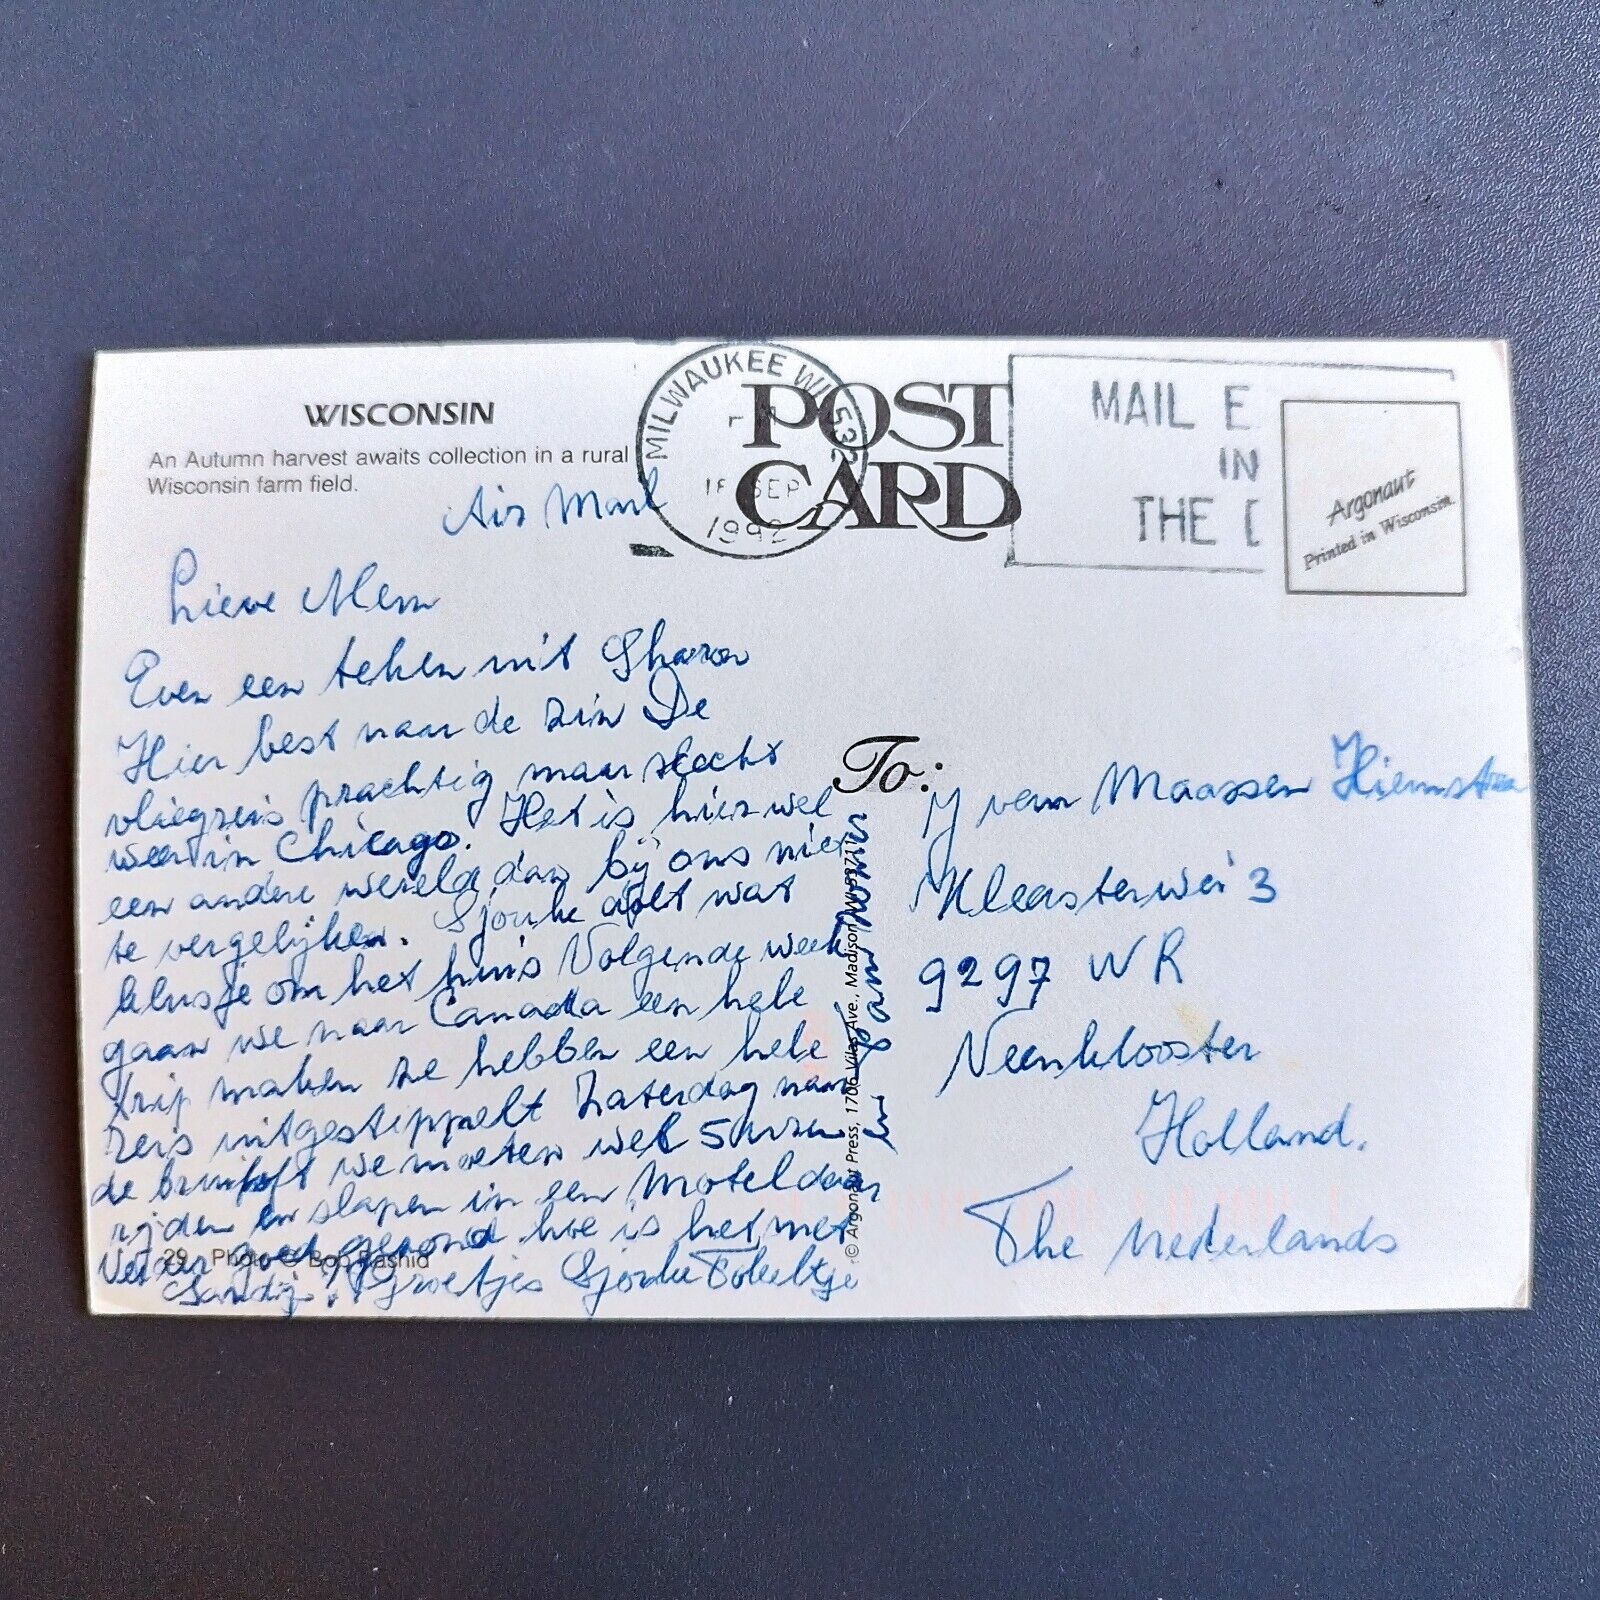 WISCONSIN
An Autumn harvest awaits collection in a rural
Wisconsin farm field.
Air Mail
MILWAUKEE WI 532
SEP
1992
POST
CARD
MAIL E
IN
THE
Argonaut
Printed in Wisconsin
Lieve Mem
Even een teken uit Sharon
Hier best naar de zin De
vliegreis prachtig maar slecht
weer in Chicago. Het is hier wel
een andere wereld dan bij ons niet
te vergelijken. Sjouke doet wat
klusje om het huis Volgende week
gaan we naar Canada een hele
trip maken ze hebben een hele
reis uitgestippelt Zaterdag naar
de bruiloft we moeten wel 5 uren
rijden en slapen in een Motel daar
Verder goed gezond hoe is het met
Groetjes Sjouke Fokeltje
29 Photo © Bob Rashid
© Argonaut Press, 1706 Vilas Ave., Madison, WI 53711
To:
J van Maassen Hiemstra
Kleasterwei 3
9297 WR
Veenklooster
Holland.
The Nederlands